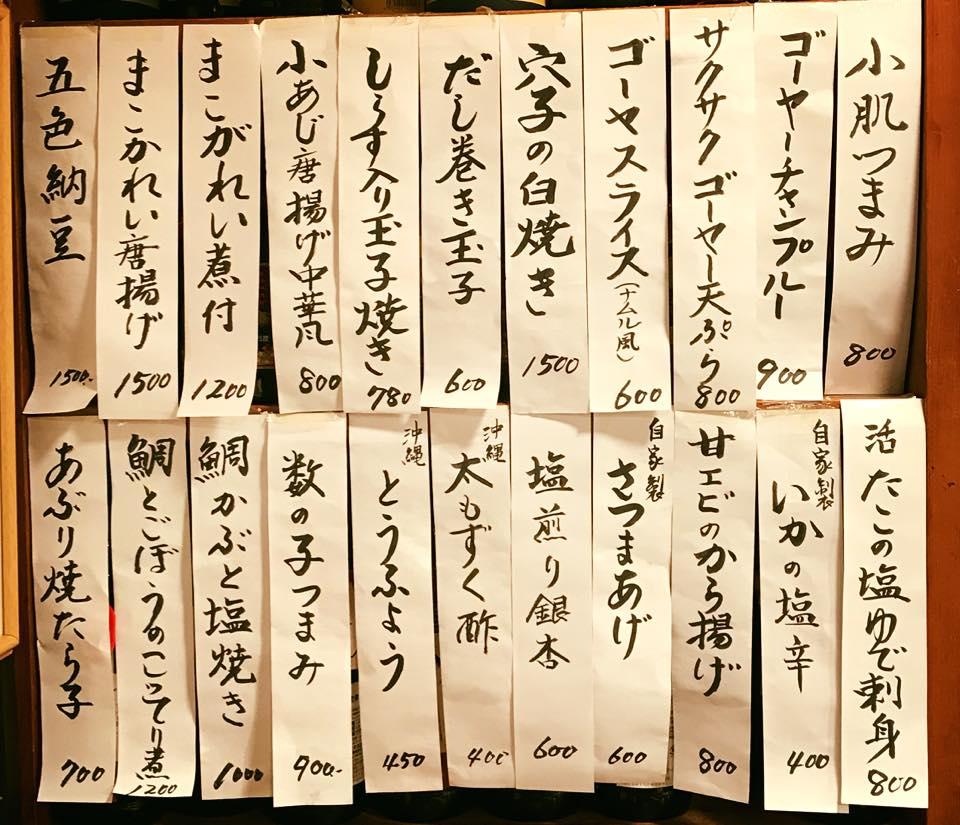 小肌つまみ 800
ゴーヤーチャンプルー 900
サクサクゴーヤー天ぷら 800
ゴーヤスライス(ナムル風) 600
穴子の白焼き 1500
だし巻き玉子 600
しらす入り玉子焼き 780
小あじ唐揚げ中華風 800
まこがれい煮付 1200
まこかれい唐揚げ 1500
五色納豆 1500-
活たこの塩ゆで刺身 800
自家製 いかの塩辛 400
甘エビのから揚げ 800
自家製 さつまあげ 600
塩煎り銀杏 600
沖縄 太もずく酢 400
沖縄 とうふよう 450
数の子つまみ 900-
鯛かぶと塩焼き 1000
鯛とごぼうのこってり煮 1200
あぶり焼たら子 700